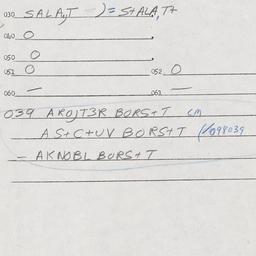 030 SALA,T —)= S+ALA,T+
040 O
050 O
051 O 052 O
060 — 061 —
039 AROJT3R BORS+T CM
AS+C+UV BORS+T (098039
— AKNOBL BORS+T